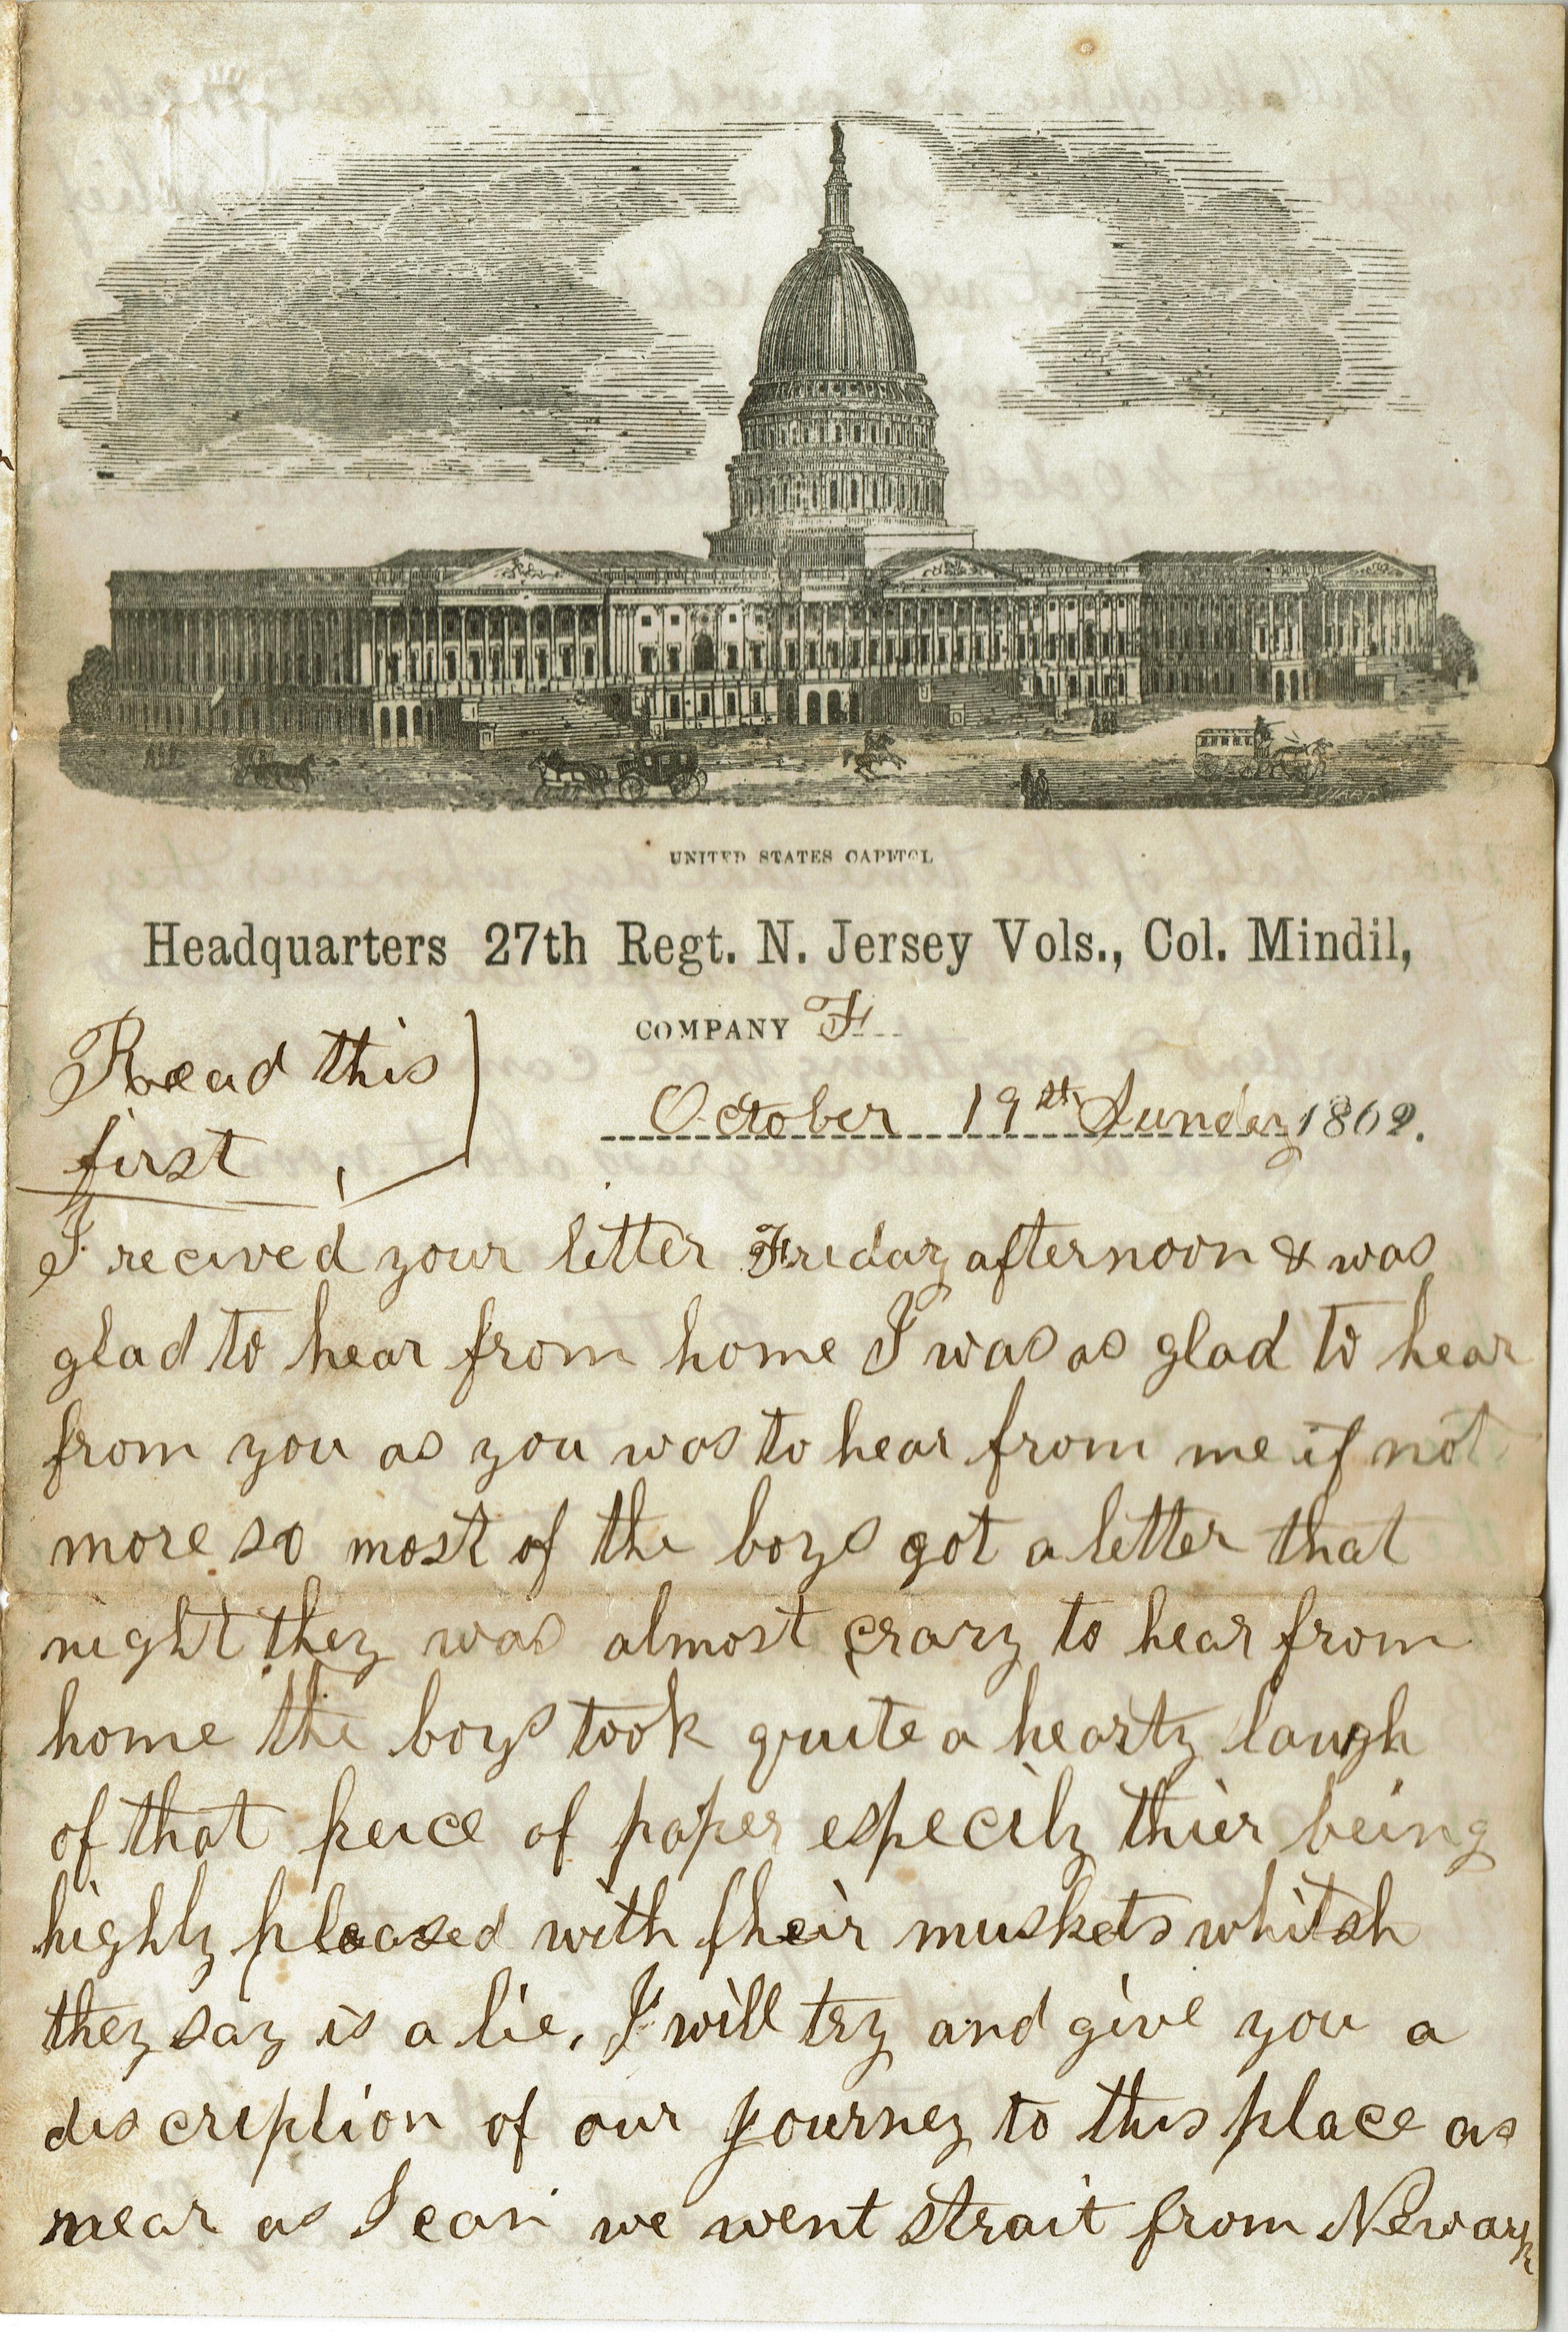 UNITED STATES CAPITOL
Headquarters 27th Regt. N. Jersey Vols., Col. Mindil,
COMPANY F
Read this
first
October 19st Sunday 1862.
I recived your letter Friday afternoon & was
glad to hear from home I was as glad to hear
from you as you was to hear from me if not
more so most of the boys got a letter that
night they was almost crazy to hear from
home the boys took quite a hearty laugh
of that peice of paper especily thier being
highly pleased with their muskets whitsh
they say is a lie. I will try and give you a
discription of our journey to this place as
near as I can we went strait from Newark